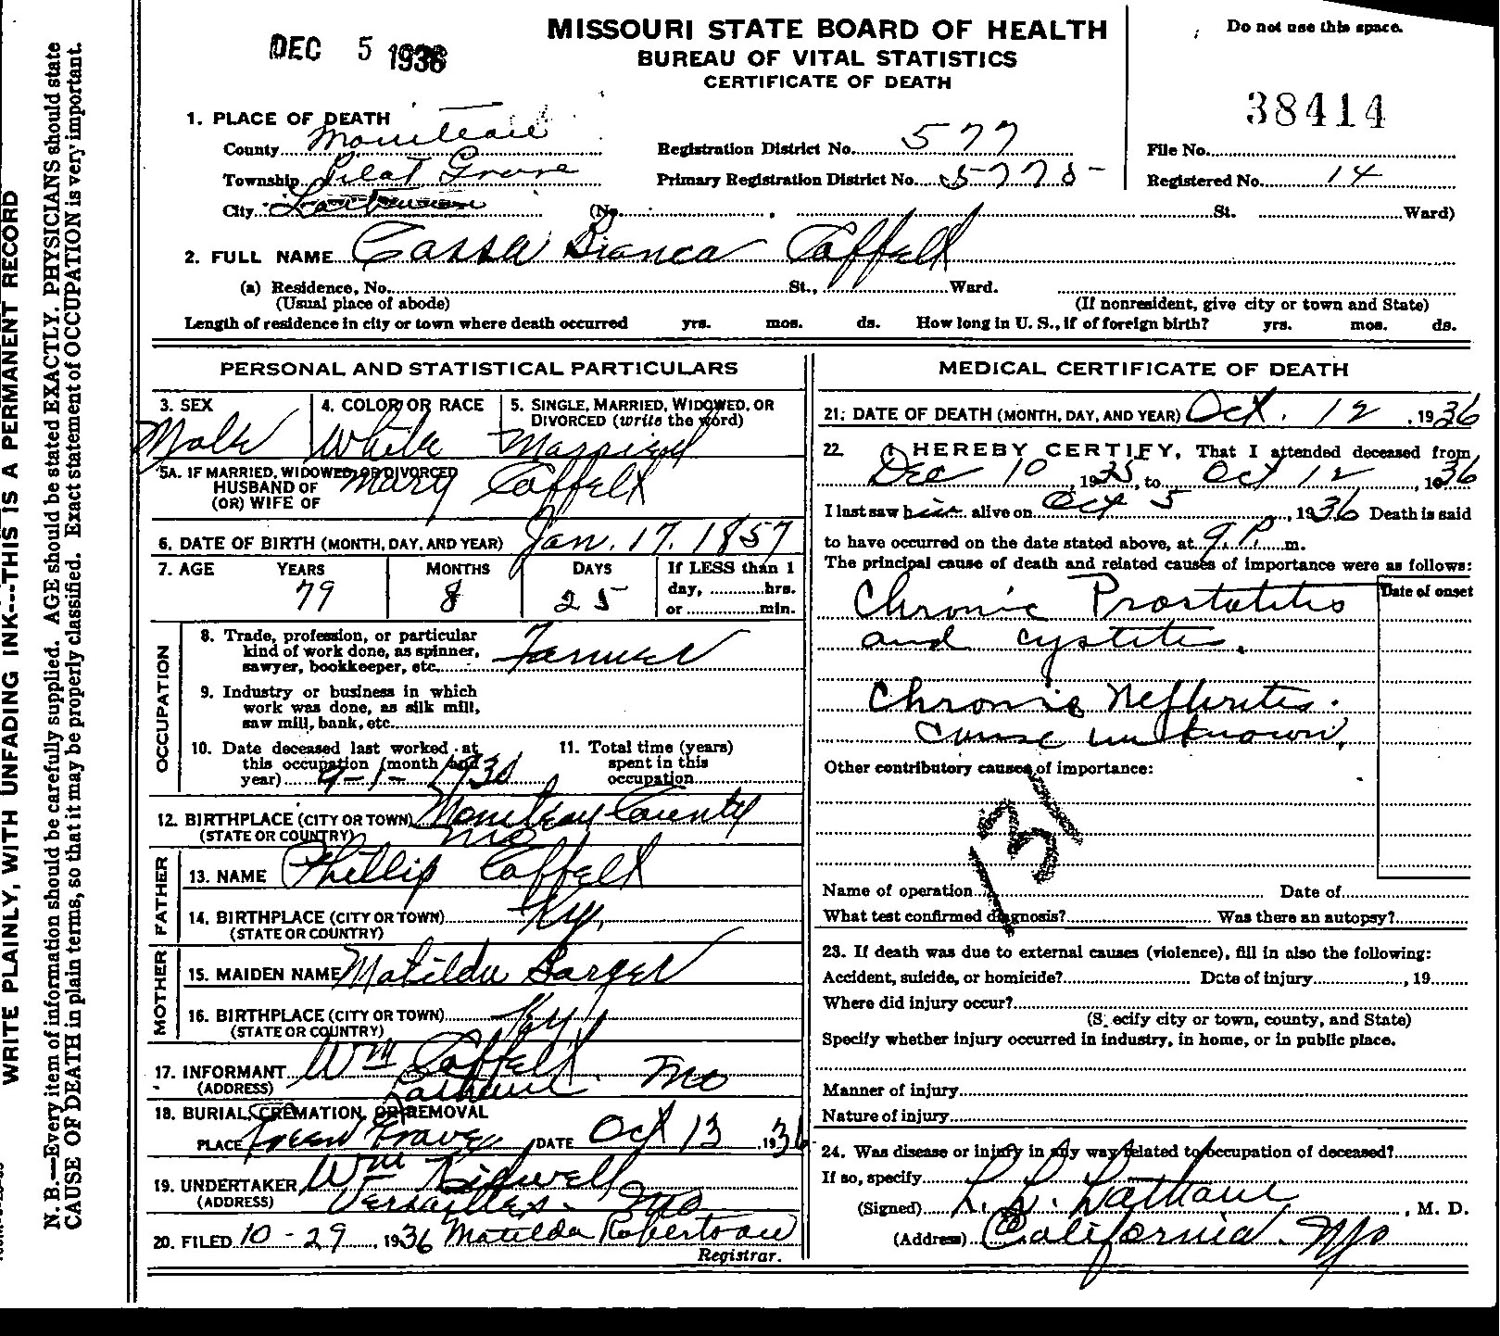 DEC 5 1936
MISSOURI STATE BOARD OF HEALTH
BUREAU OF VITAL STATISTICS
CERTIFICATE OF DEATH
Do not use this space.
38414
1. PLACE OF DEATH
County Moniteau
Township Pilot Grove
City
Registration District No. 577
Primary Registration District No. 5775
File No.
Registered No. 14
(No. , St. Ward)
2. FULL NAME Cassa Bianca Coffelt
(a) Residence, No. St., Ward.
(Usual place of abode) (If nonresident, give city or town and State)
Length of residence in city or town where death occurred yrs. mos. ds. How long in U. S., if of foreign birth? yrs. mos. ds.
PERSONAL AND STATISTICAL PARTICULARS
3. SEX 4. COLOR OR RACE 5. SINGLE, MARRIED, WIDOWED, OR
DIVORCED (write the word)
Male White Married
5A. IF MARRIED, WIDOWED, OR DIVORCED
HUSBAND OF Mary Coffelt
(OR) WIFE OF
6. DATE OF BIRTH (MONTH, DAY, AND YEAR) Jan. 17, 1857
7. AGE YEARS MONTHS DAYS If LESS than 1
day, hrs.
79 8 25 or min.
OCCUPATION
8. Trade, profession, or particular
kind of work done, as spinner,
sawyer, bookkeeper, etc. Farmer
9. Industry or business in which
work was done, as silk mill,
saw mill, bank, etc.
10. Date deceased last worked at
this occupation (month and
year) 9-1-1930
11. Total time (years)
spent in this
occupation
12. BIRTHPLACE (CITY OR TOWN) Moniteau County
(STATE OR COUNTRY) Mo
FATHER
13. NAME Phillip Coffelt
14. BIRTHPLACE (CITY OR TOWN) Ky.
(STATE OR COUNTRY)
MOTHER
15. MAIDEN NAME Matilda Barger
16. BIRTHPLACE (CITY OR TOWN) Ky
(STATE OR COUNTRY)
17. INFORMANT Wm Coffelt
(ADDRESS) Latham Mo
18. BURIAL, CREMATION, OR REMOVAL
PLACE Green Grove DATE Oct 13, 1936
19. UNDERTAKER Wm Kidwell
(ADDRESS) Versailles. Mo
20. FILED 10-29, 1936 Matilda Robertson
Registrar.
MEDICAL CERTIFICATE OF DEATH
21. DATE OF DEATH (MONTH, DAY, AND YEAR) Oct. 12, 1936
22. I HEREBY CERTIFY, That I attended deceased from
Dec 10, 1935, to Oct 12, 1936
I last saw him alive on Oct 5, 1936 Death is said
to have occurred on the date stated above, at 9 P. m.
The principal cause of death and related causes of importance were as follows:
Date of onset
Chronic Prostatitis
and cystitis.
Chronic Nephritis.
Cause unknown.
Other contributory causes of importance:
131
Name of operation Date of
What test confirmed diagnosis? Was there an autopsy?
23. If death was due to external causes (violence), fill in also the following:
Accident, suicide, or homicide? Date of injury , 19
Where did injury occur?
(Specify city or town, county, and State)
Specify whether injury occurred in industry, in home, or in public place.
Manner of injury
Nature of injury
24. Was disease or injury in any way related to occupation of deceased?
If so, specify
(Signed) L. L. Latham, M. D.
(Address) California, Mo
WRITE PLAINLY, WITH UNFADING INK---THIS IS A PERMANENT RECORD
N. B.—Every item of information should be carefully supplied. AGE should be stated EXACTLY. PHYSICIANS should state
CAUSE OF DEATH in plain terms, so that it may be properly classified. Exact statement of OCCUPATION is very important.